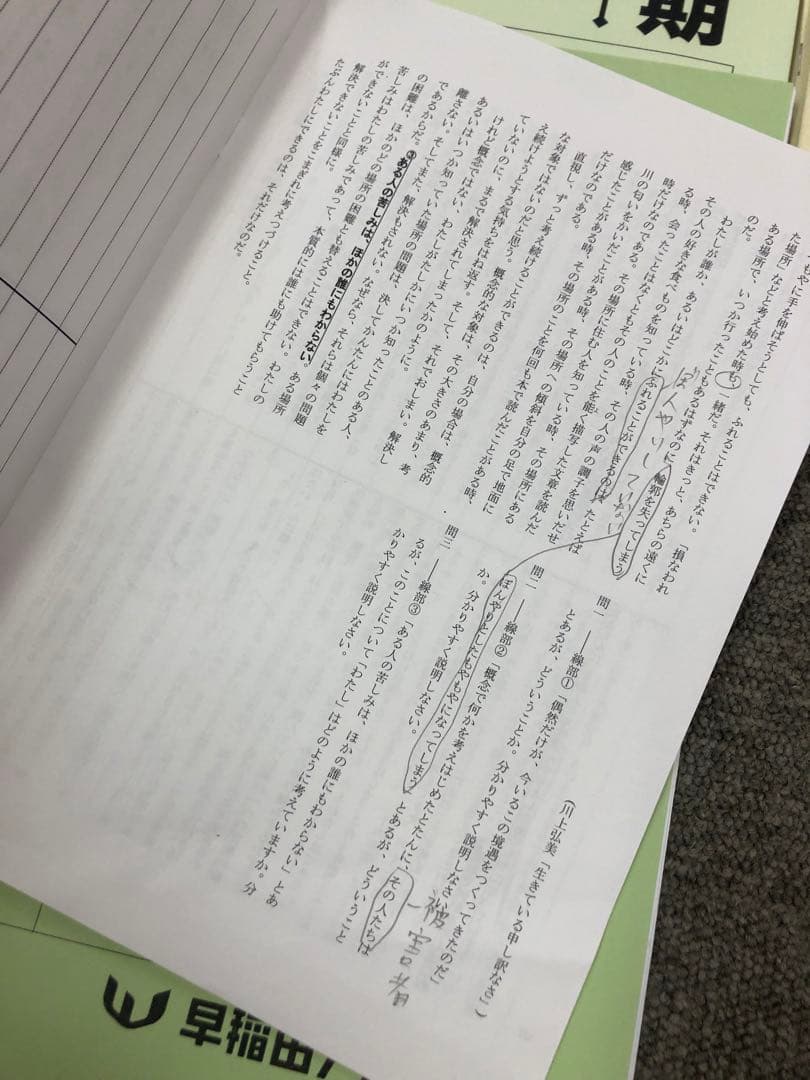 もやに手を伸ばそうとしても、ふれることはできない。「損なわれ
た場所」などと考え始めた時も、一緒だ。それはきっと、あちらの遠くに
ある場所で、いつか行ったこともあるはずなのに、輪郭を失ってしまう
のだ。
ぼんやりしていない
わたしが誰か、あるいはどこかにふれることができるのは、たとえば
その人の好きな食べものを知っている時、その人の声の調子を思いだせ
る時、会ったことはなくともその人のことを能く描写した文章を読んだ
時だけなのである。その場所に住む人を知っている時、その場所にある
川の匂いをかいだことがある時、その場所への傾斜を自分の足で地面に
感じたことがある時、その場所のことを何回も本で読んだことがある時、
だけなのである。
直視し、ずっと考え続けることができるのは、自分の場合は、概念的
な対象ではないのだと思う。概念的な対象は、その大きさのあまり、考
え続けようとする気持ちをはね返す。そして、それでおしまい。解決し
ていないのに、まるで解決されてしまったかのように。
けれど概念ではない、わたしがたしかにいつか知ったことのある人、
あるいはいつか知っていた場所の問題は、決してかんたんにはわたしを
離さない。そしてまた、解決もされない。なぜなら、それらは個々の問題
であるからだ。③ある人の苦しみは、ほかの誰にもわからない。ある場所
の困難は、ほかのどの場所の困難とも替えることはできない。わたしの
苦しみはわたしの苦しみであって、本質的には誰にも助けてもらうこと
ができないことと同様に。
解決できないことをこまぎれに考えつづけること。
たぶんわたしにできるのは、それだけなのだ。
(川上弘美「生きている申し訳なさ」)
問一 ――線部①「偶然だけが、今いるこの境遇をつくってきたのだ」
とあるが、どういうことか。分かりやすく説明しなさい。
被害者
問二 ――線部②「概念で何かを考えはじめたとたんに、その人たちは
ぼんやりとしたもやもやになってしまう」とあるが、どういうこと
か。分かりやすく説明しなさい。
問三 ――線部③「ある人の苦しみは、ほかの誰にもわからない」とあ
るが、このことについて「わたし」はどのように考えていますか。分
かりやすく説明しなさい。
期
早稲田